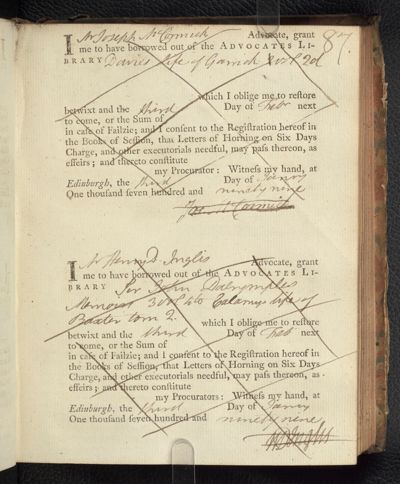 87.
I Mr Joseph McCormick Advocate, grant
me to have borrowed out of the ADVOCATES LI-
BRARY Davies life of Garrick 2 vols 8vo
which I oblige me to restore
betwixt and the third Day of Feby next
to come, or the Sum of
in case of Failzie; and I consent to the Registration hereof in
the Books of Session, that Letters of Horning on Six Days
Charge, and other executorials needful, may pass thereon, as
effeirs; and thereto constitute
my Procurator: Witness my hand, at
Edinburgh, the third Day of Janry
One thousand seven hundred and ninety nine
Jos. McCormick
I Mr Henry D. Inglis Advocate, grant
me to have borrowed out of the ADVOCATES LI-
BRARY Sir John Dalrymples
Memoirs 3 vol 4to Calamys life of
Baxter tom 2. which I oblige me to restore
betwixt and the third Day of Feb next
to come, or the Sum of
in case of Failzie; and I consent to the Registration hereof in
the Books of Session, that Letters of Horning on Six Days
Charge, and other executorials needful, may pass thereon, as
effeirs; and thereto constitute
my Procurators: Witness my hand, at
Edinburgh, the third Day of Janry
One thousand seven hundred and ninety nine
HD Inglis